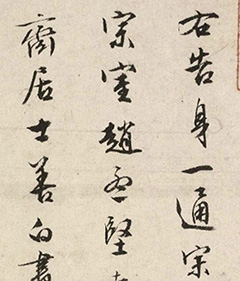 右告身一通宋
宗室趙孟堅
齋居士善白書